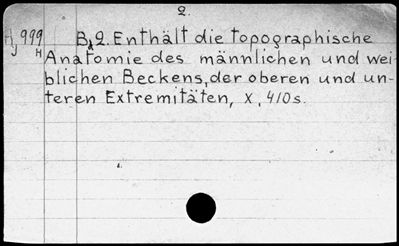 2.
H, 999 Bd 2. Enthält die topographische
H Anatomie des männlichen und wei-
blichen Beckens, der oberen und un-
teren Extremitäten, X, 410 s.